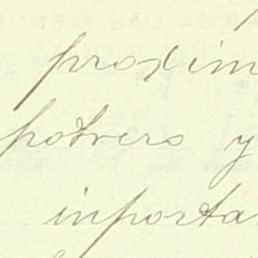 proxim
potrero y
inporta